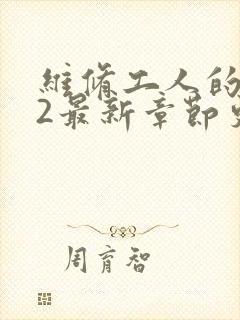 維脩工人的
2最新章節
周育智